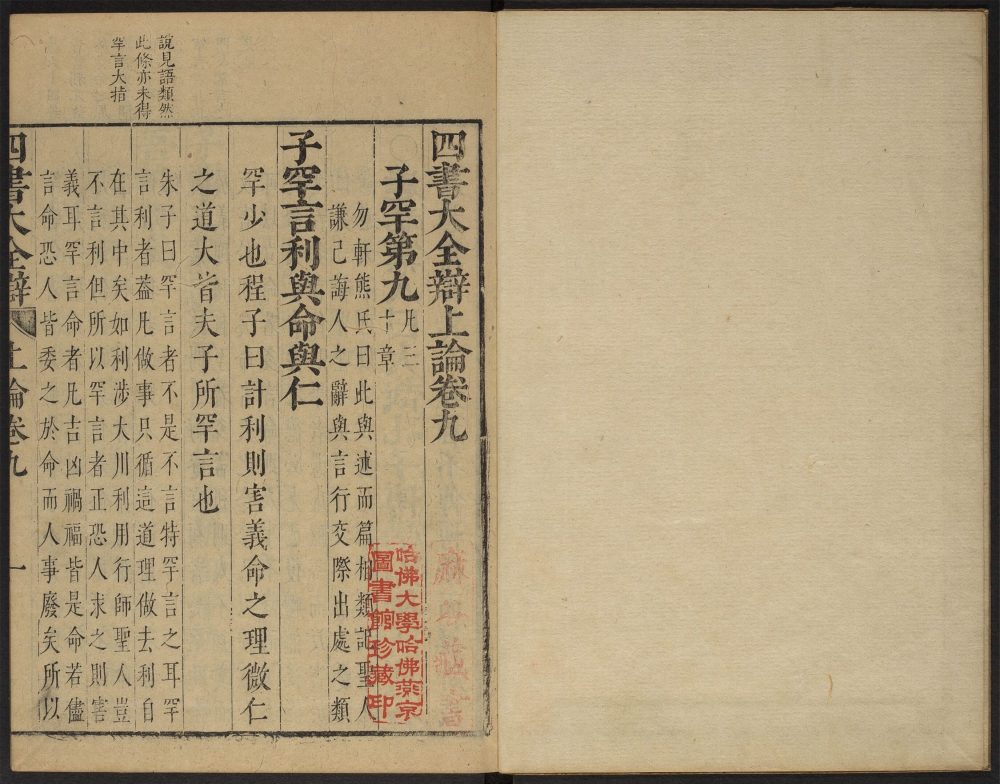 說見語類然
此條亦未得
罕言大指
四書大全辯上論卷九
子罕第九
凡三
十章
勿軒熊氏曰此與述而篇相類記聖人
謙己誨人之辭與言行交際出處之類
子罕言利與命與仁
罕少也程子曰計利則害義命之理微仁
之道大皆夫子所罕言也
朱子曰罕言者不是不言特罕言之耳罕
言利者葢凡做事只循這道理做去利自
在其中矣如利涉大川利用行師聖人豈
不言利但所以罕言者正恐人求之則害
義耳罕言命者凡吉凶禍福皆是命若儘
言命恐人皆委之於命而人事廢矣所以
四書大全辯
上論卷九
一
哈佛大學哈佛燕京
圖書館珍藏印